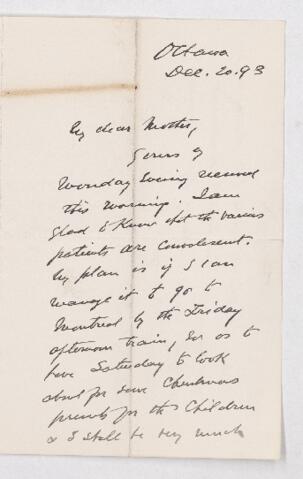 Ottawa
Dec. 20. 93
My dear Mother,
Yours of
Monday Evening received
this morning. I am
glad to know that the various
patients are convalescent.
My plan is if I can
manage it to go to
Montreal by the Friday
afternoon train, so as to
have Saturday to look
about for some Christmas
presents for the Children
& I shall be very much